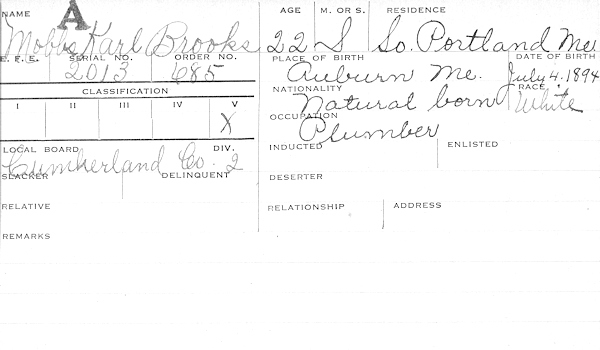 A
NAME AGE M. OR S. RESIDENCE
Mobbs Karl Brooks 22 S So. Portland Me
E. F. E. SERIAL NO. ORDER NO. PLACE OF BIRTH DATE OF BIRTH
2013 685 Auburn Me. July 4. 1894
CLASSIFICATION NATIONALITY RACE
I II III IV V Natural born White
X OCCUPATION
Plumber
LOCAL BOARD DIV. INDUCTED ENLISTED
Cumberland Co. 2
SLACKER DELINQUENT DESERTER
RELATIVE RELATIONSHIP ADDRESS
REMARKS